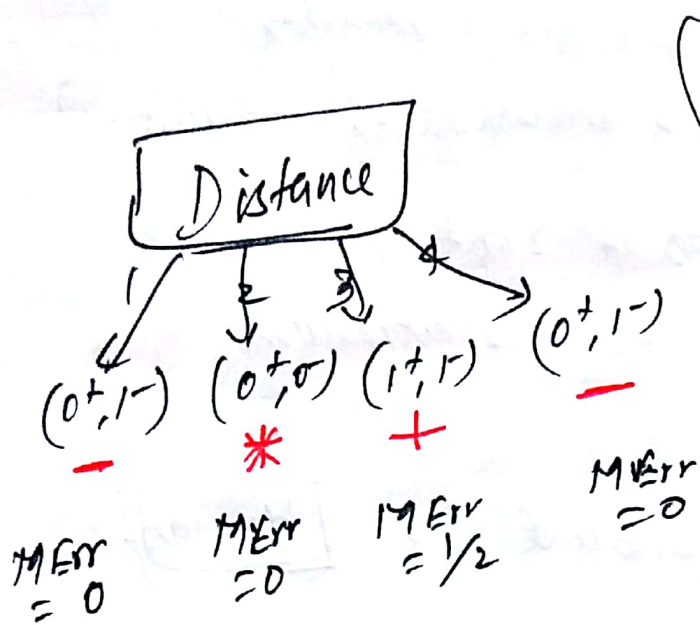 Distance
1 2 3 4
(0+, 1-) (0+, 0-) (1+, 1-) (0+, 1-)
- * + -
MErr = 0
MErr = 0
MErr = 1/2
MErr = 0